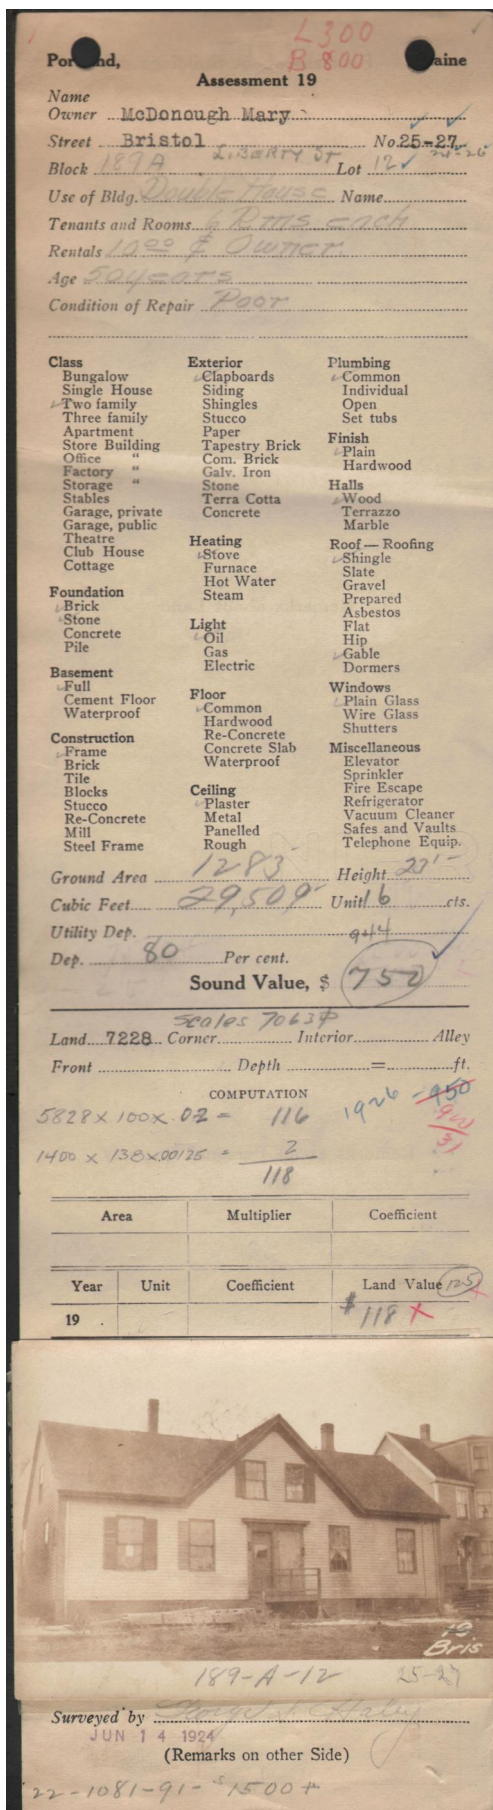 L300
B 800
Portland, Maine
Assessment 19
Name
Owner McDonough Mary
Street Bristol No. 25-27
LIBERTY ST 24-26
Block 189A Lot 12
Use of Bldg. Double House Name
Tenants and Rooms 6 Rms each
Rentals 10.00 & Owner.
Age 50 years
Condition of Repair Poor
Class
Bungalow
Single House
Two family
Three family
Apartment
Store Building
Office "
Factory "
Storage "
Stables
Garage, private
Garage, public
Theatre
Club House
Cottage
Foundation
Brick
Stone
Concrete
Pile
Basement
Full
Cement Floor
Waterproof
Construction
Frame
Brick
Tile
Blocks
Stucco
Re-Concrete
Mill
Steel Frame
Exterior
Clapboards
Siding
Shingles
Stucco
Paper
Tapestry Brick
Com. Brick
Galv. Iron
Stone
Terra Cotta
Concrete
Heating
Stove
Furnace
Hot Water
Steam
Light
Oil
Gas
Electric
Floor
Common
Hardwood
Re-Concrete
Concrete Slab
Waterproof
Ceiling
Plaster
Metal
Panelled
Rough
Plumbing
Common
Individual
Open
Set tubs
Finish
Plain
Hardwood
Halls
Wood
Terrazzo
Marble
Roof — Roofing
Shingle
Slate
Gravel
Prepared
Asbestos
Flat
Hip
Gable
Dormers
Windows
Plain Glass
Wire Glass
Shutters
Miscellaneous
Elevator
Sprinkler
Fire Escape
Refrigerator
Vacuum Cleaner
Safes and Vaults
Telephone Equip.
Ground Area 1283 Height 23'-
Cubic Feet 29,509 Unit 16 cts.
Utility Dep. 944
Dep. 80 Per cent.
Sound Value, $ 750
Scales 7063
Land 7228 Corner Interior Alley
Front Depth = ft.
COMPUTATION
1926 - 950
5828 x 100 x .02 = 116
1400 x 138 x .00125 = 2
118
Area Multiplier Coefficient
Year Unit Coefficient Land Value 125
19 $118 X
19
Bris
189-A-12 25-27
Surveyed by
JUN 14 1924
(Remarks on other Side)
22-1081-91- $1500 +